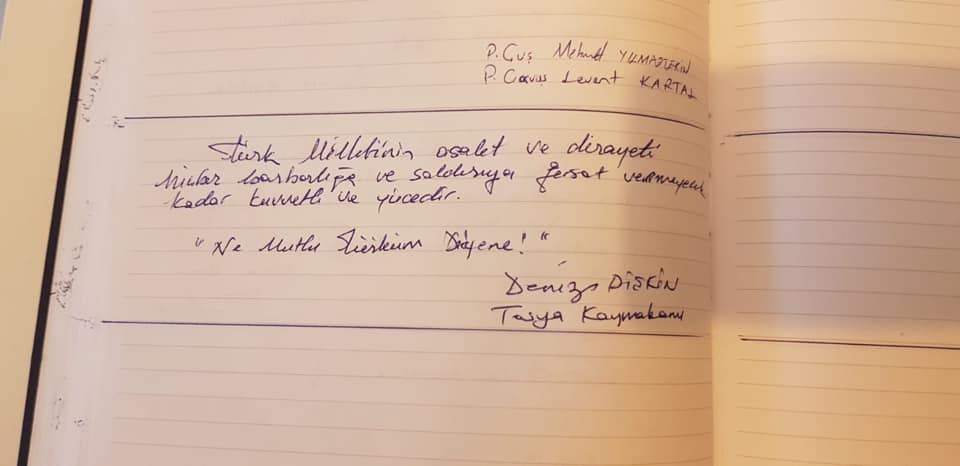 P. Çvş Mehmet YILMAZTEKİN
P. Çavuş Levent KARTAL
Türk Milletinin asalet ve dirayeti
barbarlığa ve saldırıya fırsat vermeyecek
kadar kuvvetli ve yücedir.
"Ne Mutlu Türküm Diyene!"
Deniz PİŞKİN
Tosya Kaymakamı